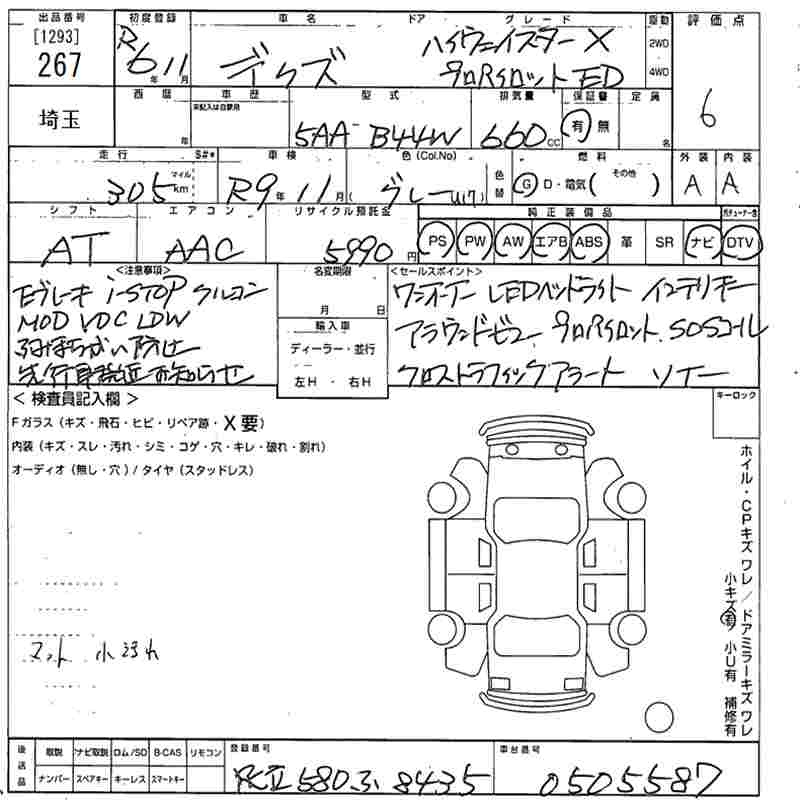 出品番号 初度登録 車名 ドア グレード 駆動 評価点
[1293]
267
R6年11月
デイズ
ハイウェイスターX
プロパイロットED
2WD
4WD
6
埼玉
西暦 車歴 型式 排気量 保証書 定員
未記入は自家用
年
5AA-B44W
660cc
有 無
名
走行 S#* 車検 色(Col.No) 燃料 外装 内装
305 マイル km
R9年11月
グレー
色替
G D・電気( その他 )
A A
シフト エアコン リサイクル預託金 純正装備品
AT AAC 5990円
PS PW AW エアB ABS 革 SR ナビ DTV
<注意事項>
Eブレーキ i-STOP クルコン
MOD VDC LDW
ふみまちがい防止
先行車発進お知らせ
名変期限
月 日
輸入車
ディーラー・並行
左H ・ 右H
<セールスポイント>
ワンオーナー LEDヘッドライト インテリキー
アラウンドビュー プロパイロット SOSコール
クロストラフィックアラート ソナー
<検査員記入欄>
Fガラス(キズ・飛石・ヒビ・リペア跡・X要)
内装(キズ・スレ・汚れ・シミ・コゲ・穴・キレ・破れ・割れ)
オーディオ(無し・穴)/タイヤ(スタッドレス)
キーロック
ホイル・CPキズワレ/ドアミラーキズワレ
小キズ有 小U有 補修有
マット 小汚れ
後送品
取説 ナビ取説 ロム/SD B-CAS リモコン
ナンバー スペアキー キーレス スマートキー
登録番号
580 8435
車台番号
0505587